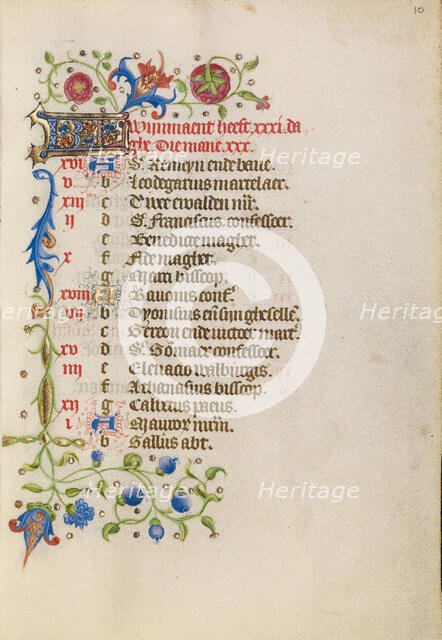 10
Wijnmaent heeft .xxxi. da
ghe Die mane .xxx.
xvi A S. Remyn ende baue.
v b Leodegarius martelaer.
xiii c Twee ewalden mr.
ii d S. Franciscus confessoer.
e Benedicte maghet.
x f Fide maghet.
g Marci bisscop.
xviii A Bauonis conf.
vii b Dyonisius en sijn gheselle.
c Gereon ende victoer mart.
xv d S. Gomaer confessoer.
iiij e walburgis.
f Athanasius bisscop.
xij g Calixtus paeus.
i A
b Gallus abt.
Heritage
Heritage
Heritage
Heritage
Heritage
Heritage
Heritage
Heritage